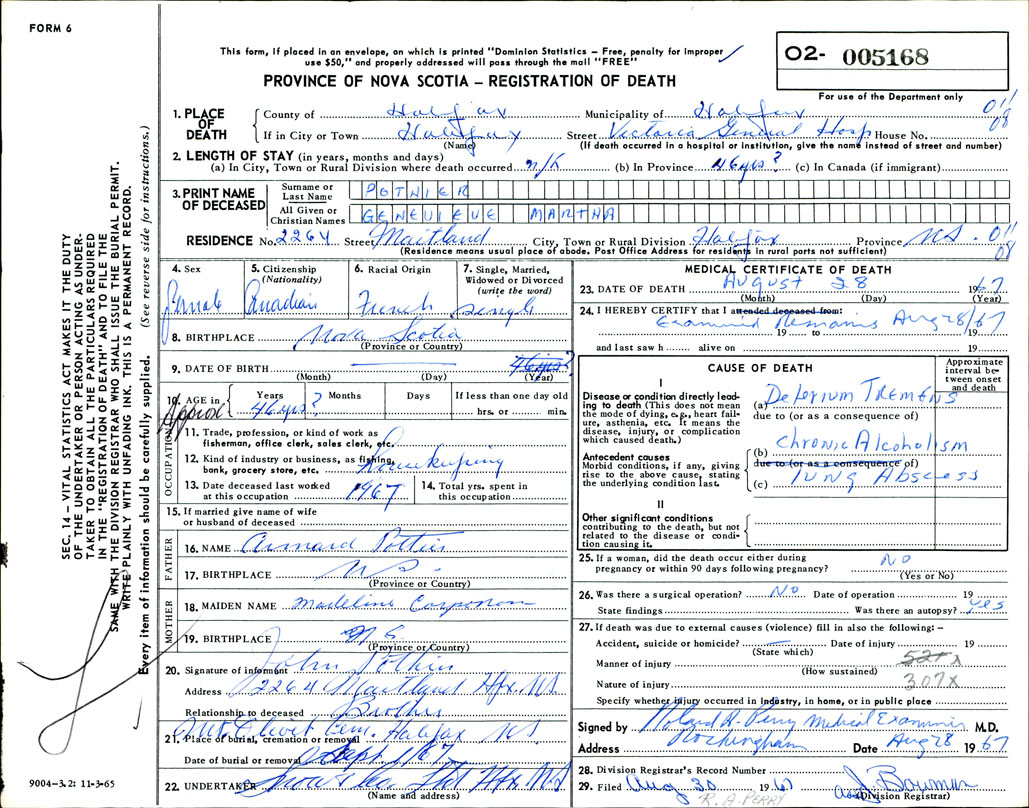 FORM 6
This form, if placed in an envelope, on which is printed "Dominion Statistics – Free, penalty for improper
use $50," and properly addressed will pass through the mail "FREE"
PROVINCE OF NOVA SCOTIA – REGISTRATION OF DEATH
O2- 005168
For use of the Department only
SEC. 14 – VITAL STATISTICS ACT MAKES IT THE DUTY
OF THE UNDERTAKER OR PERSON ACTING AS UNDER-
TAKER TO OBTAIN ALL THE PARTICULARS REQUIRED
IN THE "REGISTRATION OF DEATH" AND TO FILE THE
SAME WITH THE DIVISION REGISTRAR WHO SHALL ISSUE THE BURIAL PERMIT.
WRITE PLAINLY WITH UNFADING INK. THIS IS A PERMANENT RECORD.
Every item of information should be carefully supplied. (See reverse side for instructions.)
1. PLACE OF DEATH
County of Halifax Municipality of Halifax 011
If in City or Town Halifax Street Victoria General Hosp House No. 08
(Name) (If death occurred in a hospital or institution, give the name instead of street and number)
2. LENGTH OF STAY (in years, months and days)
(a) In City, Town or Rural Division where death occurred n/k (b) In Province 46 yrs? (c) In Canada (if immigrant)
3. PRINT NAME OF DECEASED
Surname or Last Name POTHIER
All Given or Christian Names GENEVIEVE MARTHA
RESIDENCE No. 2264 Street Maitland City, Town or Rural Division Halifax Province NS. 011
(Residence means usual place of abode. Post Office Address for residents in rural parts not sufficient) 08
4. Sex Female
5. Citizenship (Nationality) Canadian
6. Racial Origin French
7. Single, Married, Widowed or Divorced (write the word) Single
8. BIRTHPLACE Nova Scotia
(Province or Country)
9. DATE OF BIRTH 46 yrs?
(Month) (Day) (Year)
10. AGE in Approx Years 46 yrs? Months Days If less than one day old
hrs. or min.
OCCUPATION
11. Trade, profession, or kind of work as
fisherman, office clerk, sales clerk, etc.
12. Kind of industry or business, as fishing,
bank, grocery store, etc. Housekeeping
13. Date deceased last worked at this occupation 1967
14. Total yrs. spent in this occupation
15. If married give name of wife
or husband of deceased
FATHER
16. NAME Armard Pothier
17. BIRTHPLACE NS.
(Province or Country)
MOTHER
18. MAIDEN NAME Madeline Corporon
19. BIRTHPLACE NS
(Province or Country)
20. Signature of informant John Pothier
Address 2264 Maitland Hfx. NS
Relationship to deceased Brother
21. Place of burial, cremation or removal Mt Olivet Cem. Halifax NS
Date of burial or removal Sept 1/67
22. UNDERTAKER Snow Hfx NS
(Name and address)
9004–3.2: 11-3-65
MEDICAL CERTIFICATE OF DEATH
23. DATE OF DEATH AUGUST 28 1967
(Month) (Day) (Year)
24. I HEREBY CERTIFY that I attended deceased from:
Examined Remains Aug 28/67
19 to 19
and last saw h alive on 19
CAUSE OF DEATH
Approximate interval between onset and death
I
Disease or condition directly leading to death (This does not mean the mode of dying, e.g., heart failure, asthenia, etc. It means the disease, injury, or complication which caused death.)
(a) Delerium TREMENS
due to (or as a consequence of)
Antecedent causes
Morbid conditions, if any, giving rise to the above cause, stating the underlying condition last.
(b) Chronic Alcoholism
due to (or as a consequence of)
(c) Lung Abscess
II
Other significant conditions contributing to the death, but not related to the disease or condition causing it.
25. If a woman, did the death occur either during
pregnancy or within 90 days following pregnancy? NO
(Yes or No)
26. Was there a surgical operation? NO Date of operation 19
State findings Was there an autopsy? yes
27. If death was due to external causes (violence) fill in also the following:–
Accident, suicide or homicide? Date of injury 19
(State which)
Manner of injury 521X
(How sustained)
Nature of injury 307X
Specify whether injury occurred in Industry, in home, or in public place
Signed by Roland A. Perry Medical Examiner M.D.
Address Rockingham Date Aug 28 1967
28. Division Registrar's Record Number
29. Filed Aug 30 1967 Bowmer
R. A. PERRY (Division Registrar)